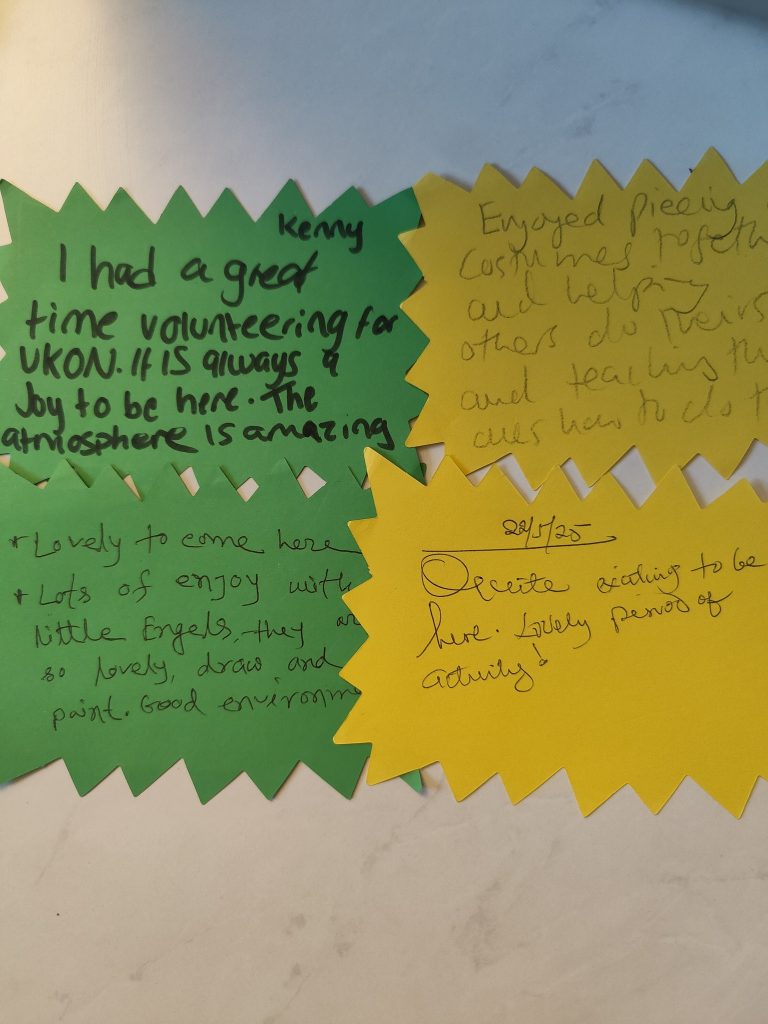 Kenny
I had a great
time volunteering for
UKON. It is always a
Joy to be here. The
atmosphere is amazing
Enjoyed piecing
costumes togeth
and helping
others do theirs
and teaching th
ones how to do t
* Lovely to come here
* Lots of enjoy with
little Engels, they ar
so lovely, draw and
paint. Good environme
22/5/25
Quite exciting to be
here. Lovely period of
activity!